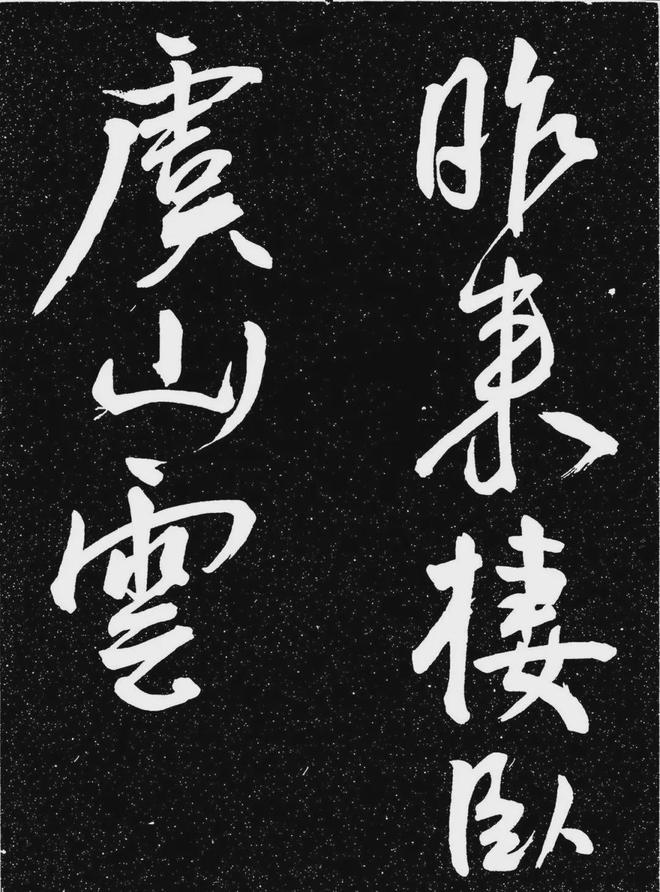 昨来棲臥
虞山雲